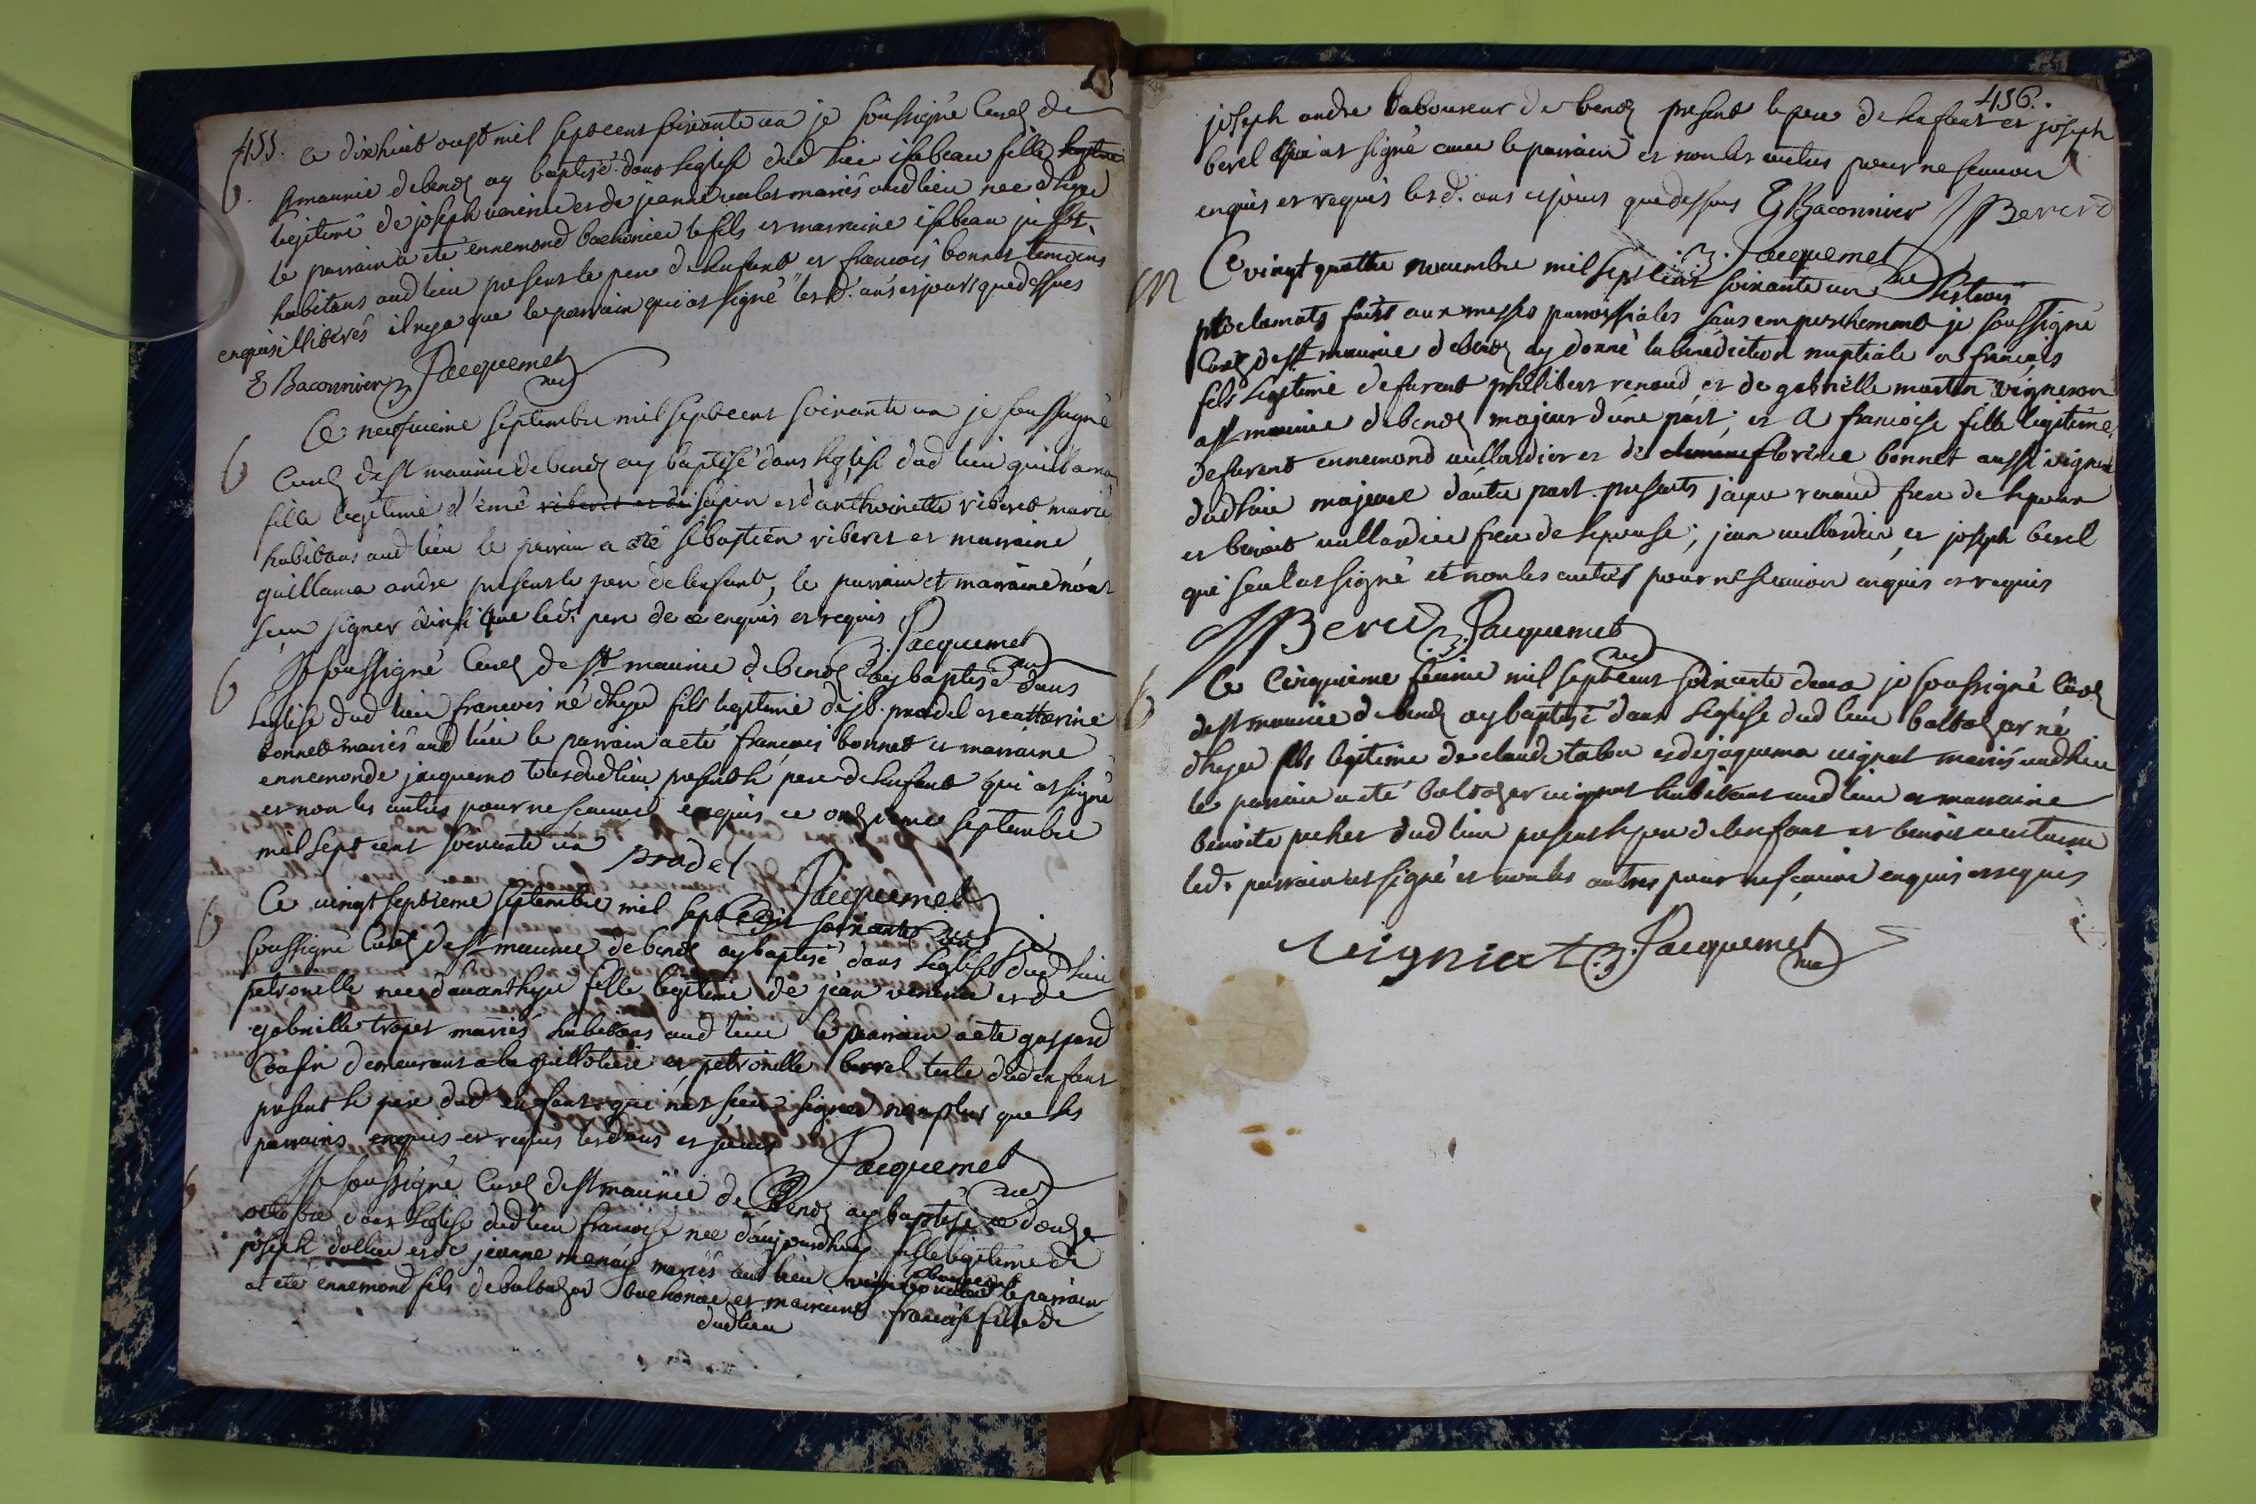 455.
Ce dixhuit oust mil septcent soixante un je soussigné Curé de
b. St maurice de benoz ay baptisé dans leglise dud lieu isabeau fille
legitime de joseph et de jeanne mariés aud lieu nee dhyer
le parrain à eté ennemond bachonier le fils et marraine isabeau
habitans aud lieu present le pere de lenfant et francois bonnet temoins
enquis illiterés il nya que le parrain qui at signé les d. an et jours que dessus
E Baconnier Jacquemet curé
Ce neufvieme septembre mil septcent soixante un je soussigné
b Curé de st maurice de benoz ay baptisé dans leglise dud lieu guillama
fille legitime d'émé riberet et de et d'anthoinette riberet mariés
habitans aud lieu le parrain a eté sebastien riberet et marraine
guillama andre present le pere de lenfant, le parrain et marraine n'ont
sceu signer ainsi que led. pere de ce enquis et requis
Jacquemet curé
b Je soussigné Curé de st maurice de benoz ay baptisé dans
leglise dud lieu francois né dhyer fils legitime de jb. pradel et catharine
bonnet mariés aud lieu le parrain a eté françois bonnet et marraine
ennemonde jacquemo tous dud lieu present le pere de lenfant qui at signé
et non les autres pour ne scavoir enquis ce onzieme septembre
mil sept cent soixante un pradel Jacquemet
b Ce vingt septieme septembre mil sept cent soixante un je
soussigné Curé de st maurice de benoz ay baptisé dans leglise dud lieu
petronille nee davanthyer fille legitime de jean et de
gabrielle tropet mariés habitans aud lieu le parrain a eté gaspard
Cousin demeurant a la guillotiere et petronille berrel tente dud enfant
present le pere dud enfant qui n'at sceu signer non plus que les
parrains enquis et requis les d ans et jours
Jacquemet curé
b Je soussigné Curé de St maurice de Benoz ay baptisé ce douze
octobre dans leglise dud lieu francoise nee daujourdhuy fille legitime de
joseph dollieu et de jeanne menay mariés aud lieu le parrain
at eté ennemond fils de baltazard bachonier et marraine francoise fille de
dud lieu
456.
joseph andre laboureur de benoz present le pere de lenfant et joseph
berel qui at signé avec le parrain et non les autres pour ne scavoir
enquis et requis les d. ans et jours que dessus E Baconnier J Berel
Jacquemet curé
m Ce vingt quatre novembre mil sept cent soixante un les trois
proclamats faits aux messes parroissiales sans empeschement je soussigné
Curé de st maurice de benoz ay donné la benediction nuptiale a françois
fils legitime de furent philibert renaud et de gabrielle martin vigneron
a st maurice de benoz majeur d'une part; et a francoise fille legitime
de furent ennemond vullardier et de florine bonnet aussi vigneron
dud lieu majeure dautre part. presents jaque renaud frere de lepoux
et benoit vullardier frere de lepouse; jean vullardier et joseph berel
qui seul at signé et non les autres pour ne scavoir enquis et requis
J Berel Jacquemet curé
b Ce Cinquieme fevrier mil septcent soixante deux je soussigné Curé
de st maurice de benoz ay baptisé dans leglise dud lieu baltazar né
dhyer fils legitime de claude tabou et de jaquema vignat mariés aud lieu
le parrain a eté baltazar vignat habitant aud lieu et marraine
benoite pachet dud lieu present le pere de lenfant et benoit
led. parrain at signé et non les autres pour ne scavoir enquis et requis
veigniat Jacquemet curé